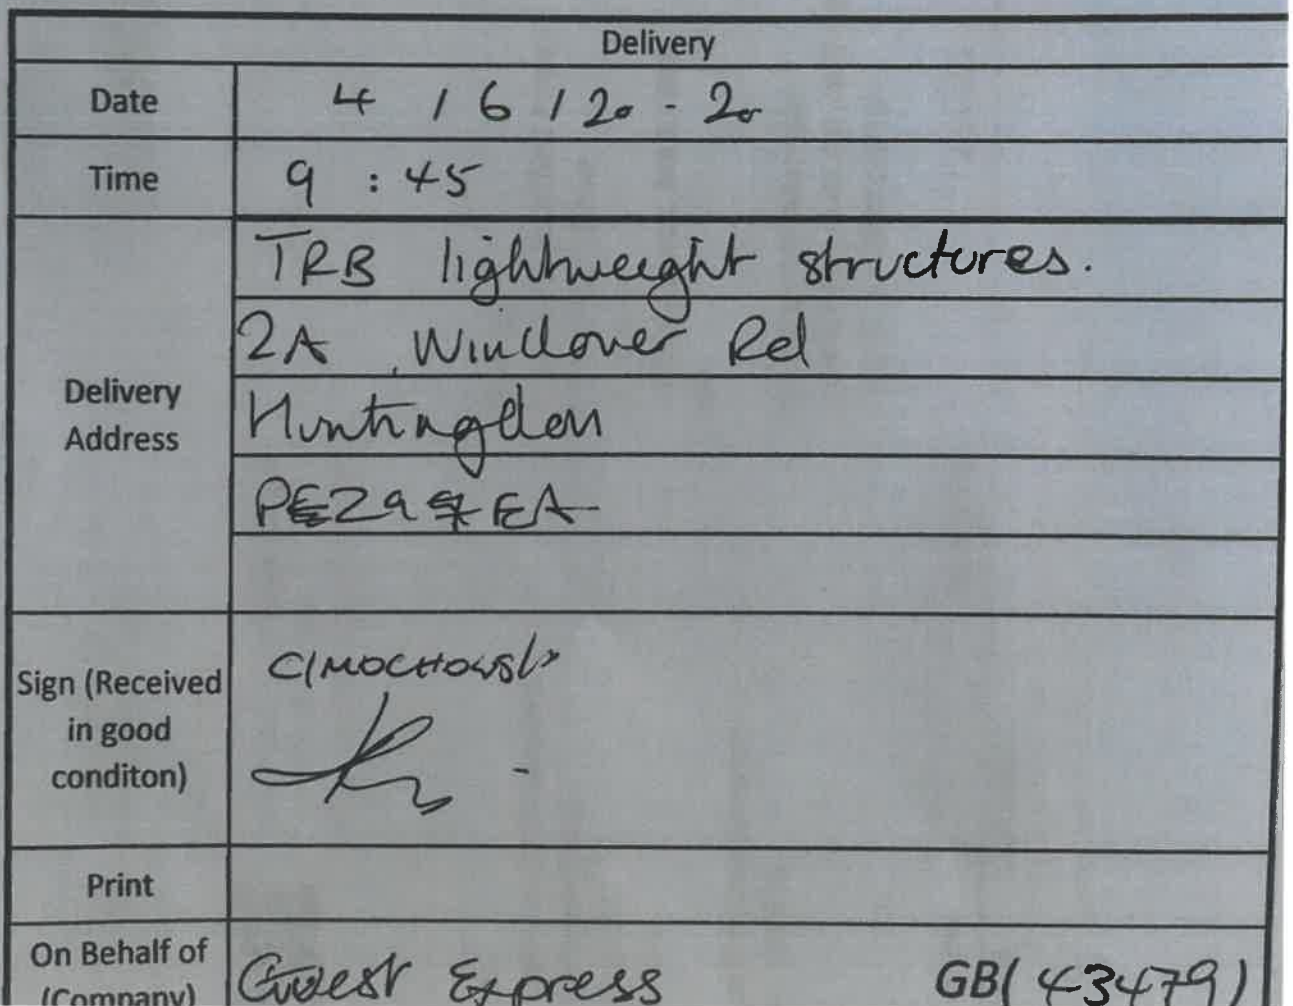 Delivery
Date 4 / 6 / 20 - 20
Time 9 : 45
Delivery Address
TRB lightweight structures.
2A, Windover Rd
Huntingdon
PE29 7EA
Sign (Received in good conditon)
CIMOCHOWSKI
Print
On Behalf of (Company) Guest Express GB( 43479)